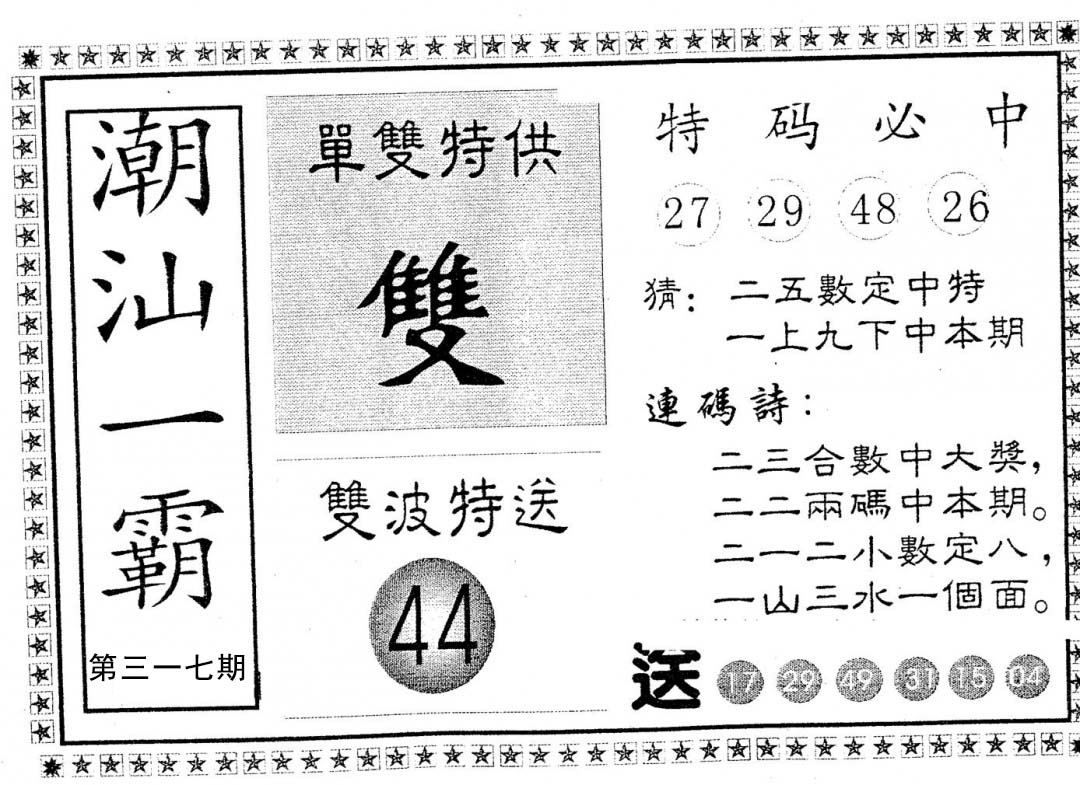 潮汕一霸
第三一七期
單雙特供
雙
雙波特送
44
特码必中
27 29 48 26
猜：二五數定中特
一上九下中本期
連碼詩：
二三合數中大獎，
二二兩碼中本期。
二一二小數定八，
一山三水一個面。
送 17 29 49 31 15 04